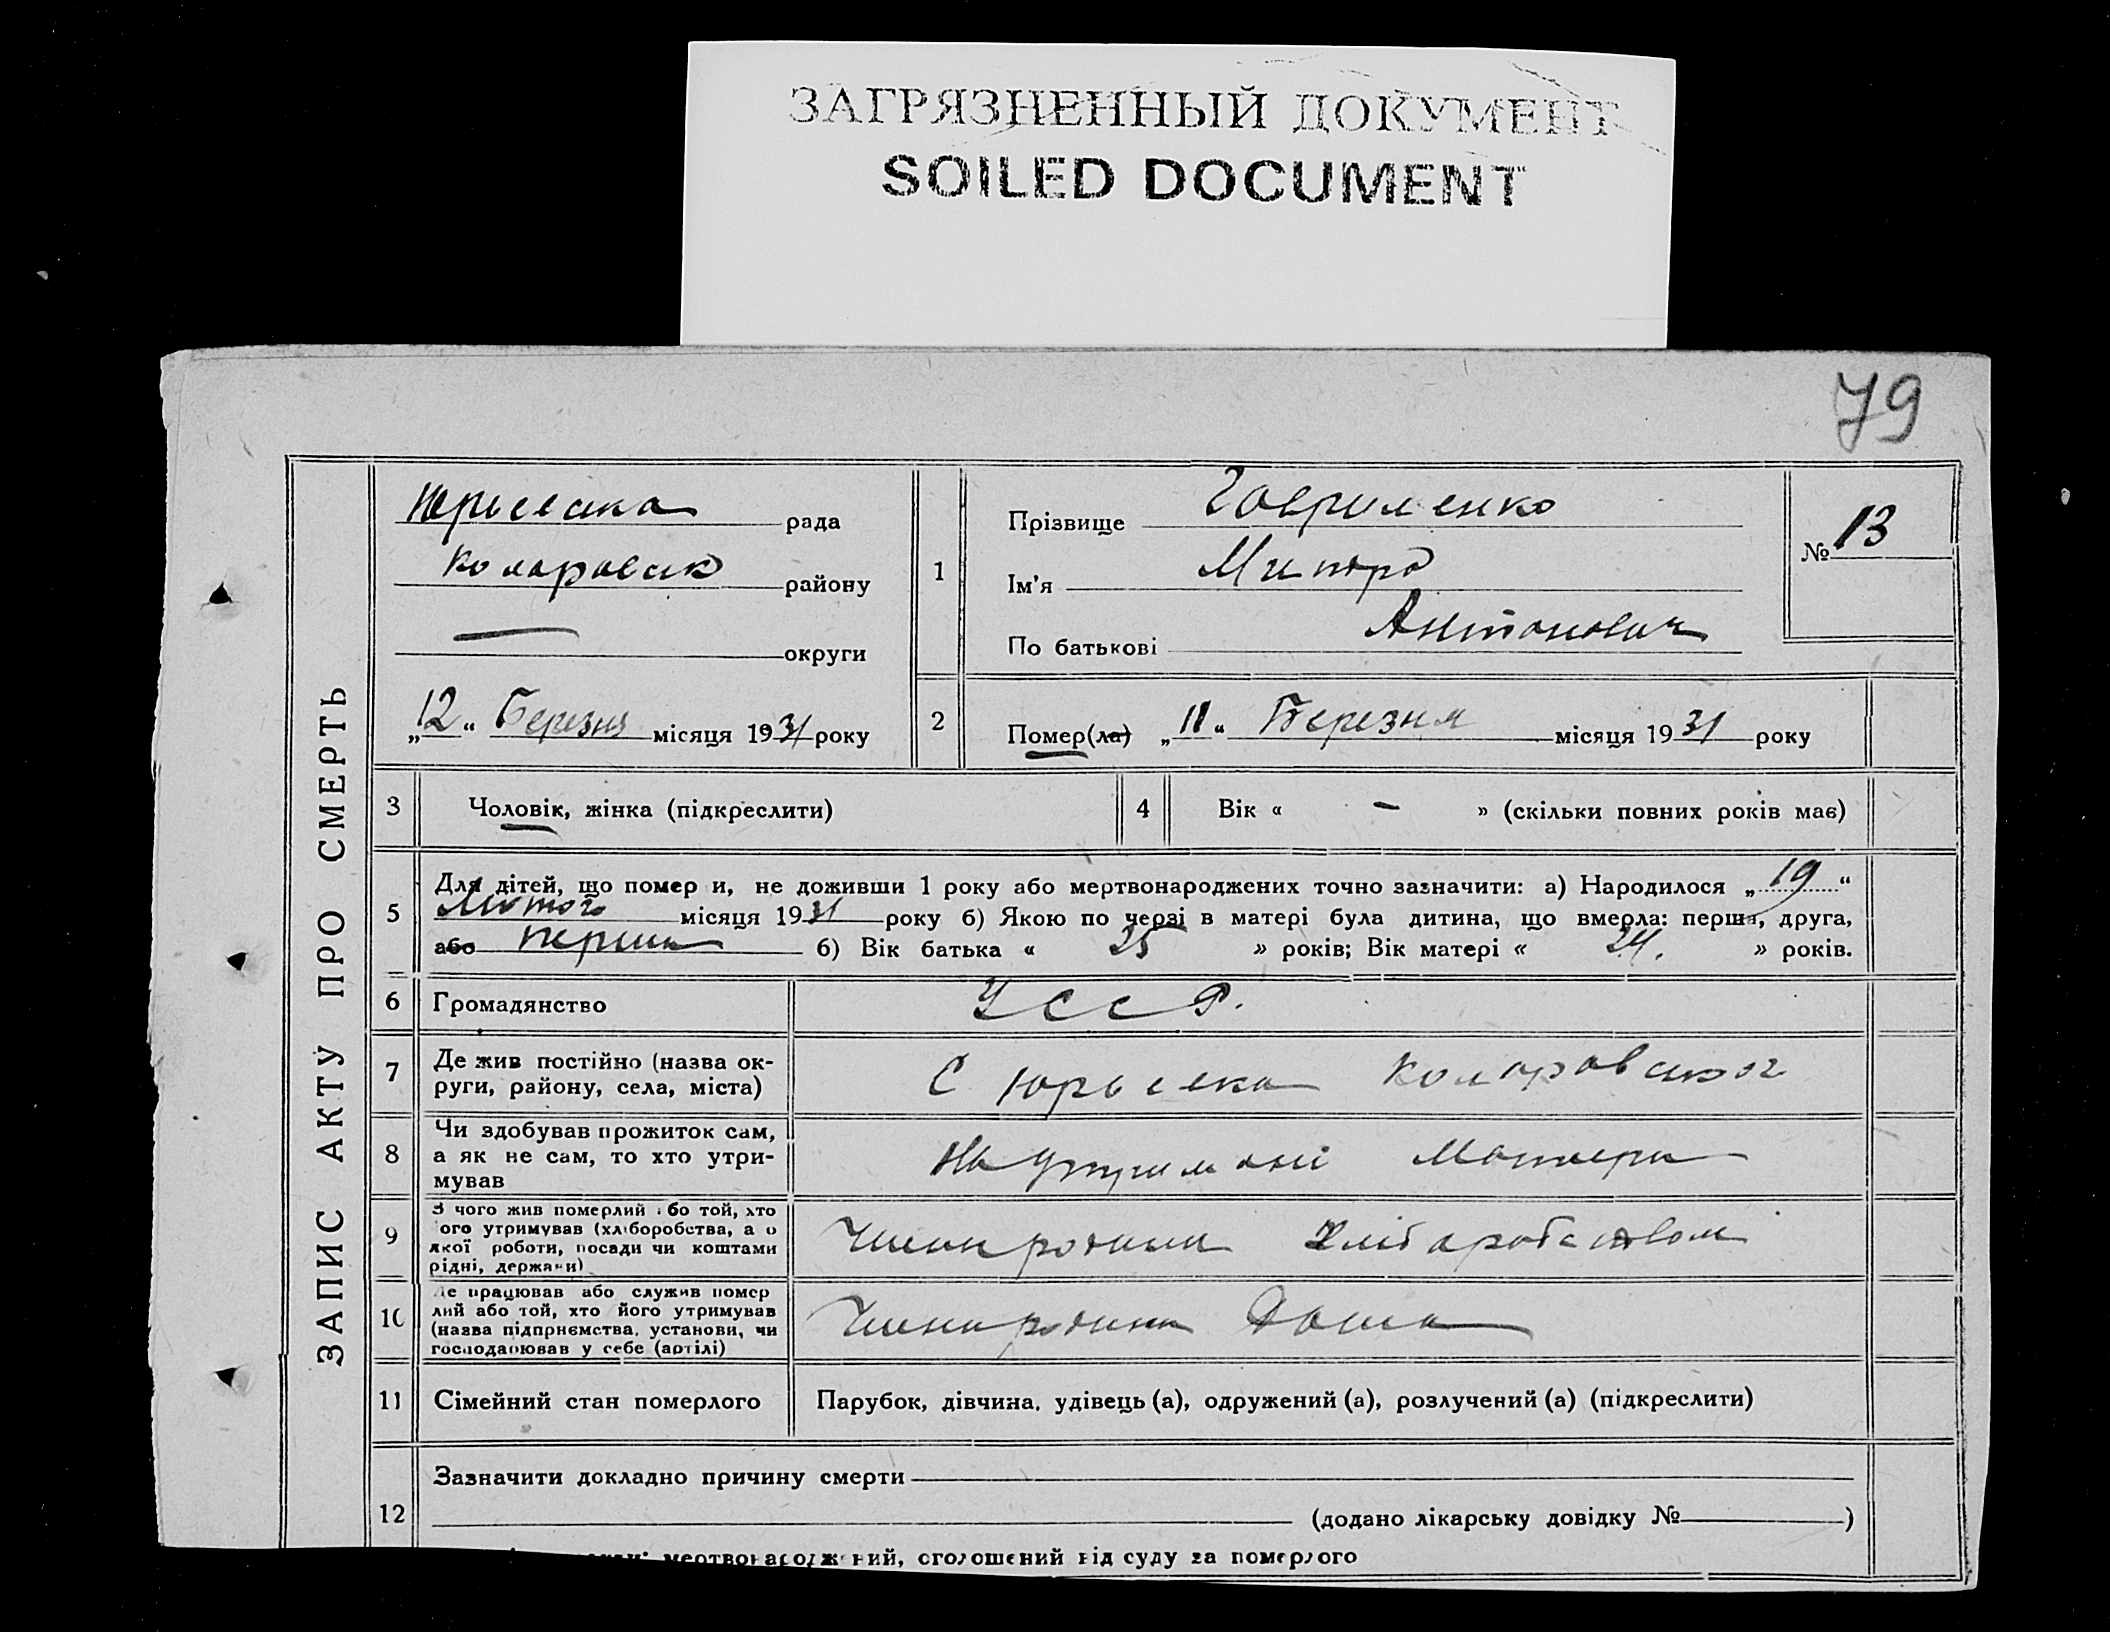 ЗАГРЯЗНЕННЫЙ ДОКУМЕНТ
SOILED DOCUMENT
79
ЗАПИС АКТУ ПРО СМЕРТЬ
Юрьевска рада
Коларовск району
— округи
„12“ Березня місяця 1931 року
1
Прізвище Гавриленко
Ім'я Митро
По батькові Антонович
№ 13
2
Помер(ла) „11“ Березня місяця 1931 року
3 Чоловік, жінка (підкреслити)
4 Вік « – » (скільки повних років має)
5 Для дітей, що помер и, не доживши 1 року або мертвонароджених точно зазначити: а) Народилося „19“
Лютого місяця 1931 року б) Якою по черзі в матері була дитина, що вмерла: перша, друга,
або перша б) Вік батька « 25 » років; Вік матері « 24. » років.
6 Громадянство УССР.
7 Де жив постійно (назва ок-
руги, району, села, міста)
С Юрьевка Коларовског
8 Чи здобував прожиток сам,
а як не сам, то хто утри-
мував
На утримані Матери
9 З чого жив померлий або той, хто
ого утримував (хліборобства, а о
якої роботи, посади чи коштами
рідні, держави)
Члени родини Хлібаробством
10 Де працював або служив помер
лий або той, хто його утримував
(назва підприємства, установи, чи
господарював у себе (артілі)
Члени родини Дома
11 Сімейний стан померлого Парубок, дівчина, удівець (а), одружений (а), розлучений (а) (підкреслити)
12 Зазначити докладно причину смерти
(додано лікарську довідку № )
мертвонароджений, оголошений від суду за померлого